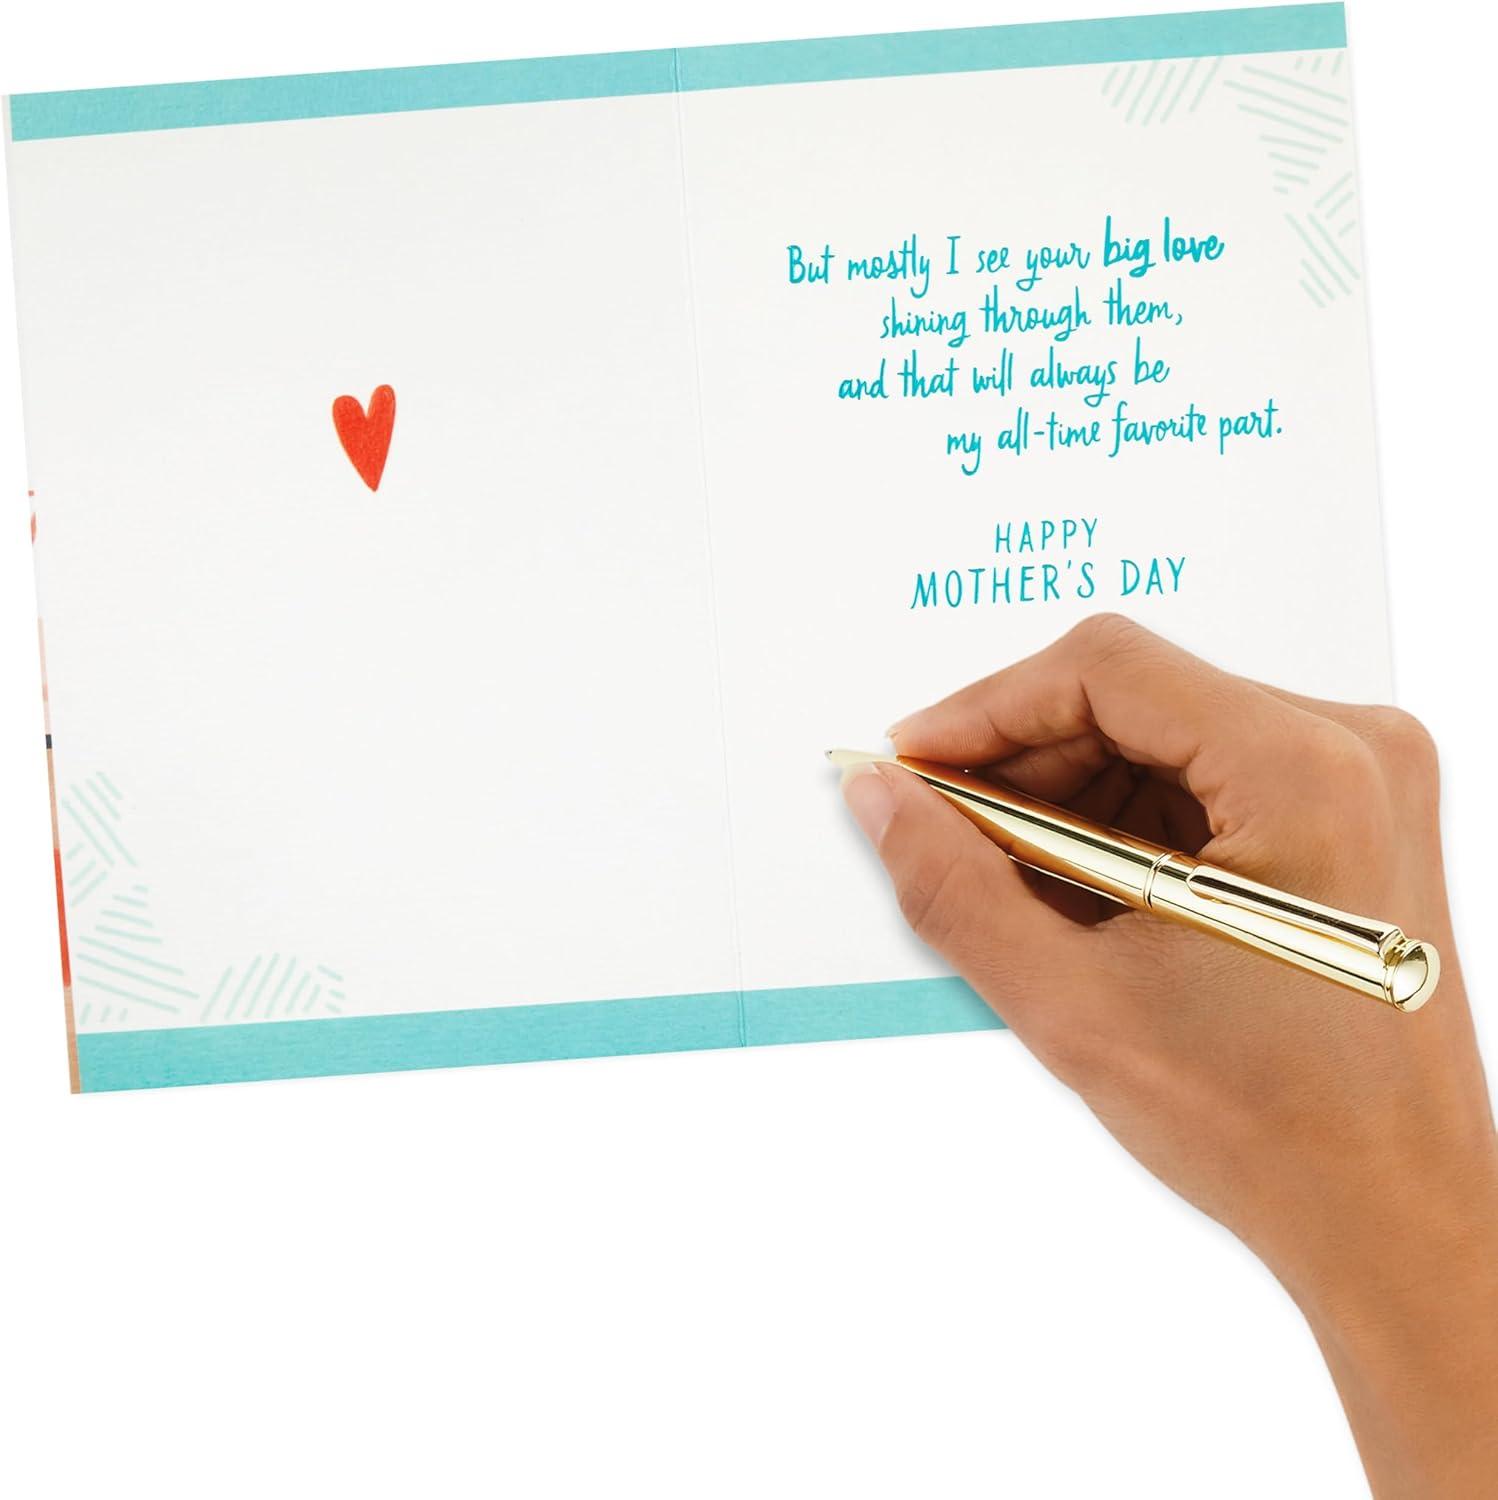 But mostly I see your big love
shining through them,
and that will always be
my all-time favorite part.
HAPPY
MOTHER'S DAY